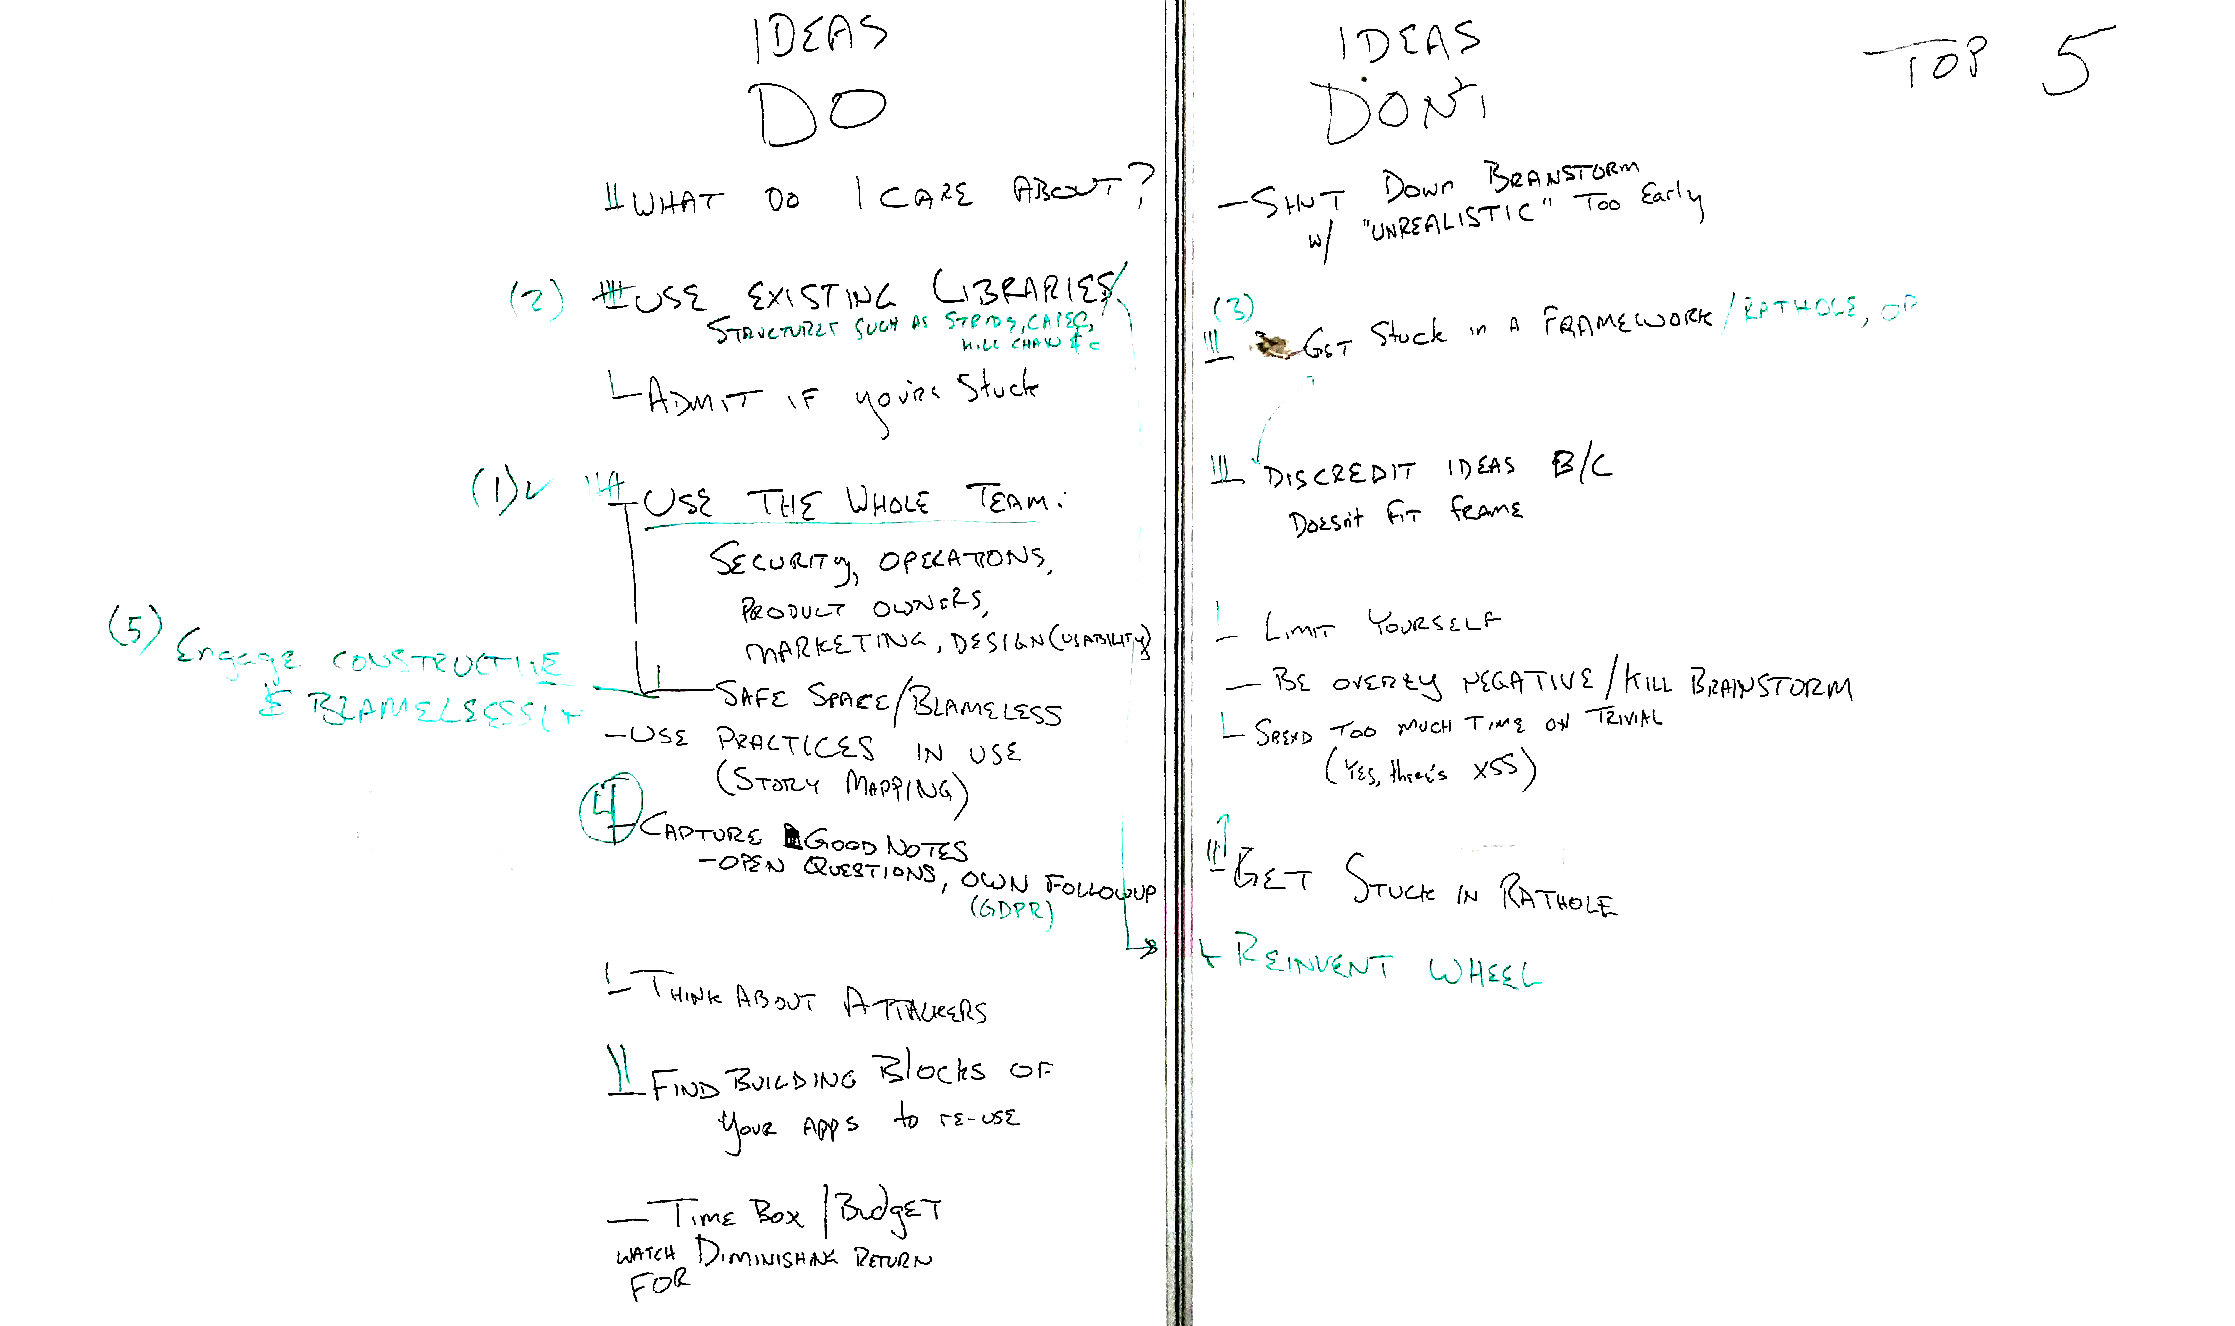 IDEAS
DO
WHAT DO I CARE ABOUT?
(2) USE EXISTING LIBRARIES/
STRUCTURES SUCH AS STRIDE, CAPEC,
KILL CHAIN &c
ADMIT IF you're Stuck
(1) USE THE WHOLE TEAM:
SECURITY, OPERATIONS,
PRODUCT OWNERS,
MARKETING, DESIGN (USABILITY)
(5) Engage CONSTRUCTIVE
& BLAMELESSLY
SAFE SPACE/BLAMELESS
- USE PRACTICES IN USE
(STORY MAPPING)
4 CAPTURE GOOD NOTES
- OPEN QUESTIONS, OWN FOLLOWUP
(GDPR)
THINK ABOUT ATTACKERS
FIND BUILDING BLOCKS OF
YOUR APPS to re-use
- TIME BOX / BUDGET
WATCH DIMINISHING RETURN
FOR
IDEAS
DON'T
- SHUT DOWN BRANSTORM
w/ "UNREALISTIC" TOO Early
(3)
GET Stuck in A FRAMEWORK/RATHOLE, OR
DISCREDIT IDEAS B/C
DOESN'T FIT FRAME
LIMIT YOURSELF
- BE OVERLY NEGATIVE/KILL BRAINSTORM
SPEND TOO MUCH TIME ON TRIVIAL
(YES, there's XSS)
GET STUCK IN RATHOLE
REINVENT WHEEL
TOP 5